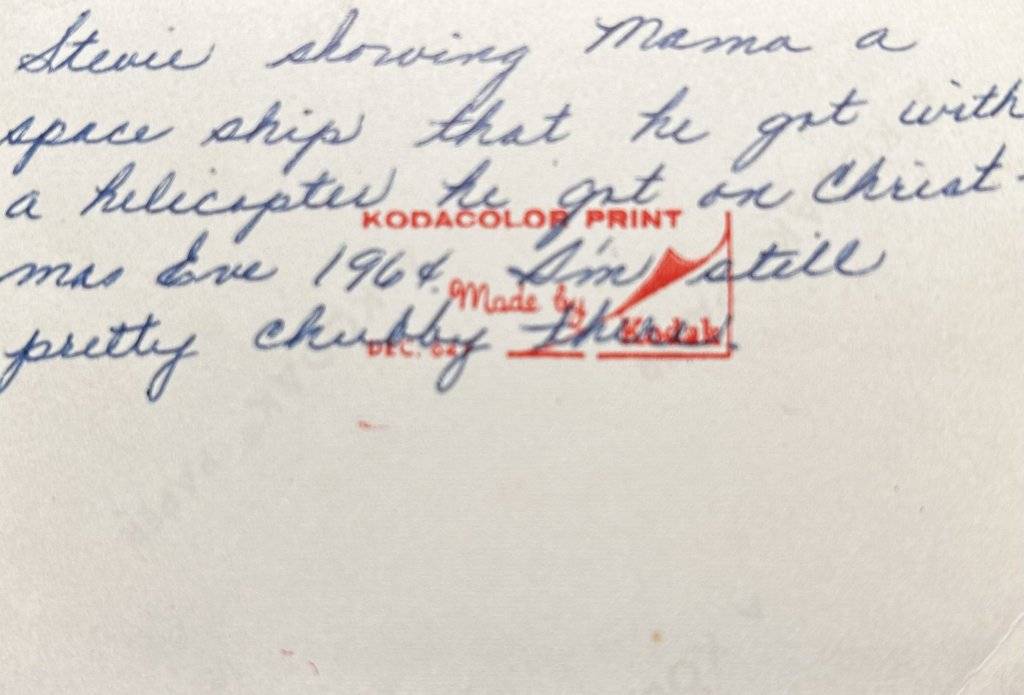 Stevie showing Mama a
space ship that he got with
a helicopter he got on Christ-
mas Eve 1964. I'm still
pretty chubby there.
KODACOLOR PRINT
Made by
Kodak
DEC. 64